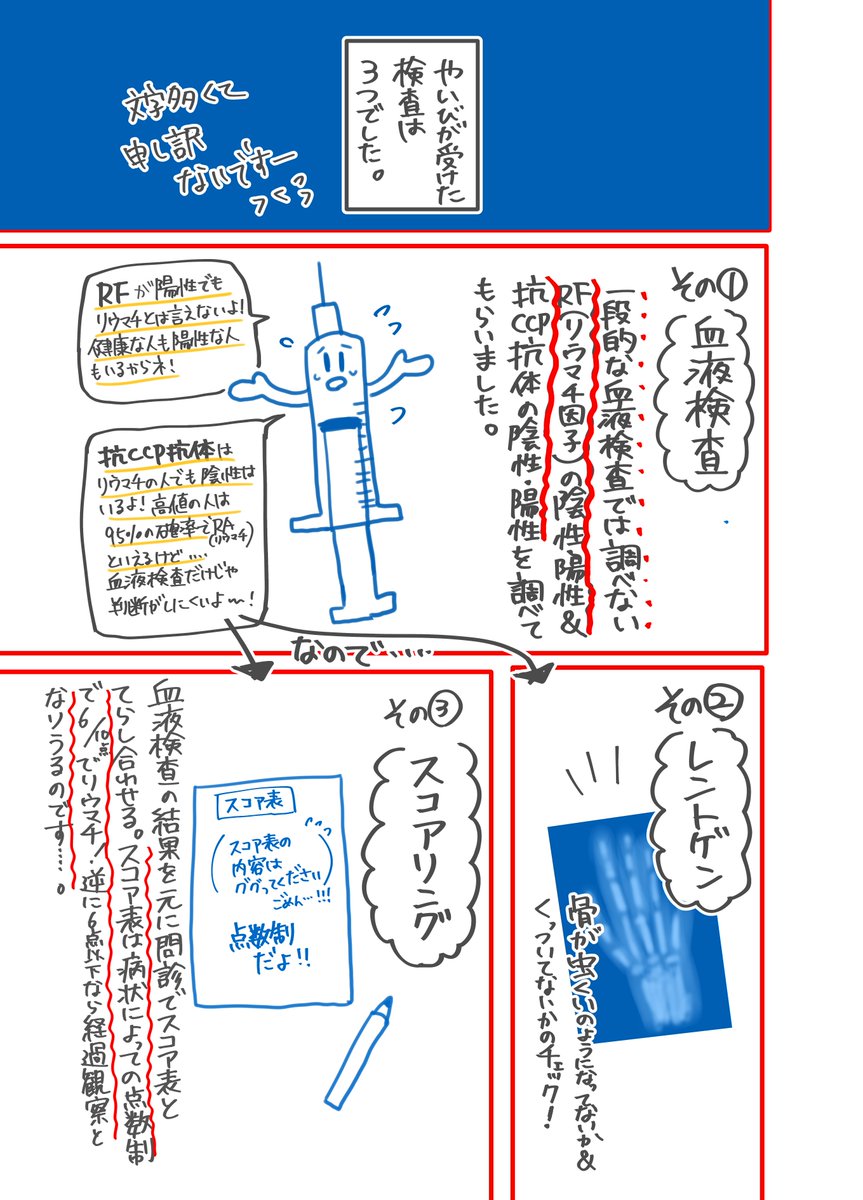 やいびが受けた
検査は
3つでした。
文字多くて
申し訳
ないですー
っくぅっ
その①
血液検査
一段的な血液検査では調べない
RF(リウマチ因子)の陰性陽性&
抗CCP抗体の陰性・陽性を調べて
もらいました。
RFが陽性でも
リウマチとは言えないよ!
健康な人も陽性な人
もいるからネ!
抗CCP抗体は
リウマチの人でも陰性は
いるよ!高値の人は
95%の確率でRA
(リウマチ)
といえるけど....
血液検査だけじゃ
判断がしにくいよ〜!
なので.....
その②
レントゲン
骨が虫くいのようになってないか&
くっついてないかのチェック!
その③
スコアリング
血液検査の結果を元に問診でスコア表と
てらし合わせる。スコア表は病状によっての点数制
で6/10点でリウマチ!逆に6点以下なら経過観察と
なりうるのです....。
スコア表
(スコア表の
内容は
ググってください
ごめん...!!!)
点数制
だよ!!